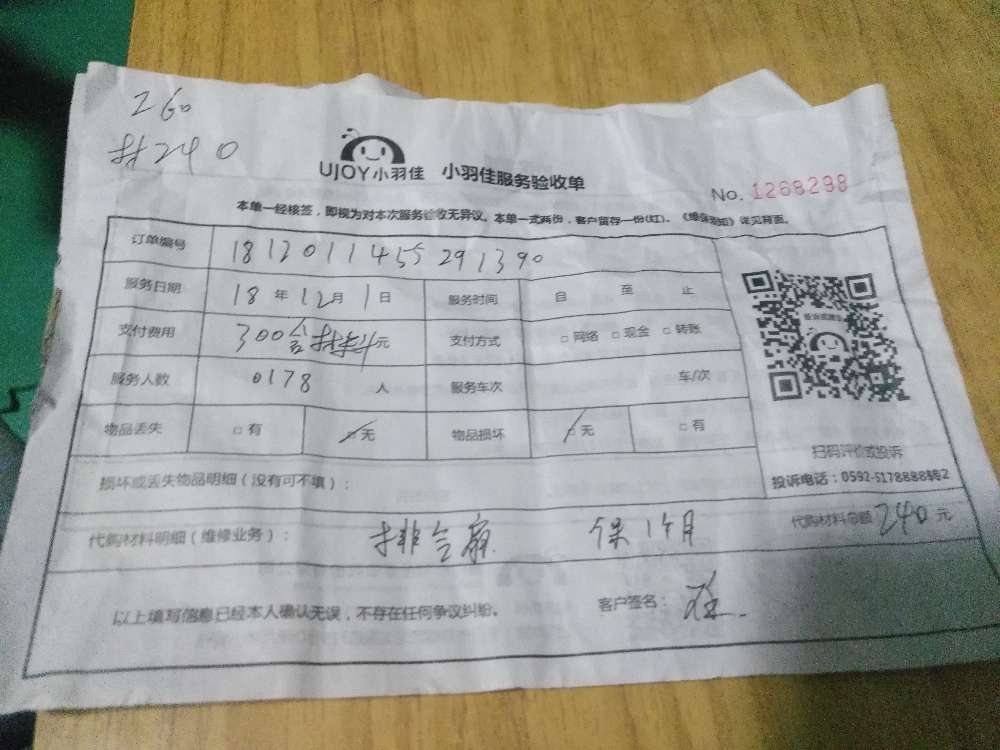 260
材240
UJOY小羽佳 小羽佳服务验收单
No. 1268298
本单一经核签，即视为对本次服务验收无异议。本单一式两份，客户留存一份(红)。《维保须知》详见背面。
订单编号 1812011455291390
服务日期 18年12月1日 服务时间 自 至 止
支付费用 300含材料元 支付方式 □网络 □现金 □转账
服务人数 0178 人 服务车次 车/次
物品丢失 □有 □无 物品损坏 □无 □有
扫码评价或投诉
投诉电话：0592-5178888转2
损坏或丢失物品明细（没有可不填）：
代购材料明细（维修业务）： 排气扇 保1个月 代购材料金额240元
以上填写信息已经本人确认无误，不存在任何争议纠纷。 客户签名：